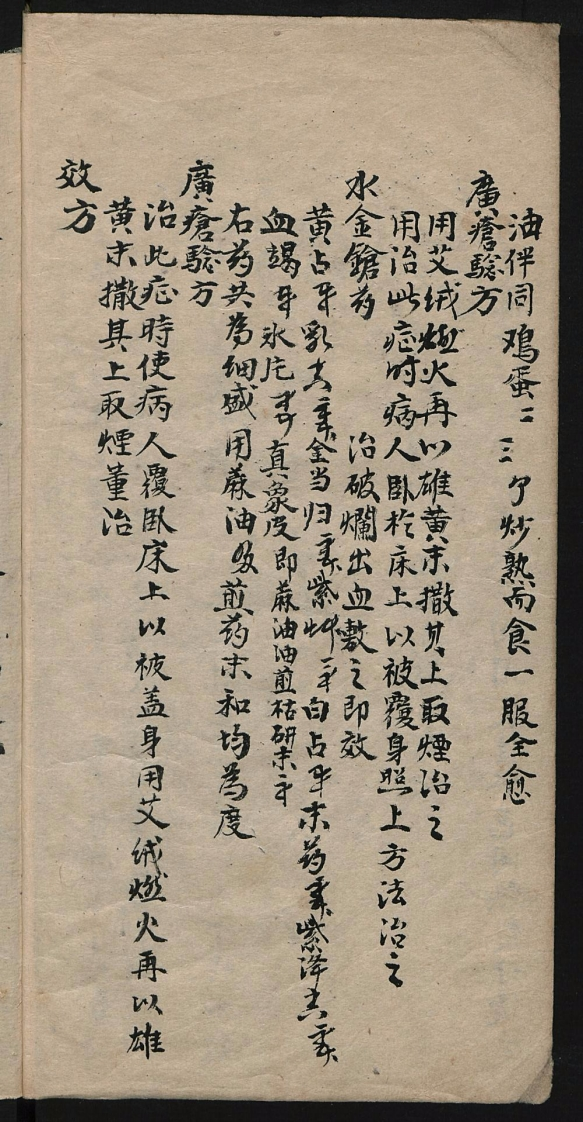 油伴同鸡蛋二三个炒熟而食一服全愈
廣瘡驗方
用艾绒燃火再以雄黃末撒其上取煙治之
用治此症时病人卧於床上以被覆身照上方法治之
水金鎗药 治破爛出血敷之即效
黃占 乳香 全当归 紫草 白占 末药 紫降香
血竭 氷片 真象皮 即蔴油油煎枯研末
右药共為细盛用蔴油煎药末和均為度
廣瘡驗方
治此症時使病人覆卧床上以被盖身用艾绒燃火再以雄
黃末撒其上取煙董治
效方